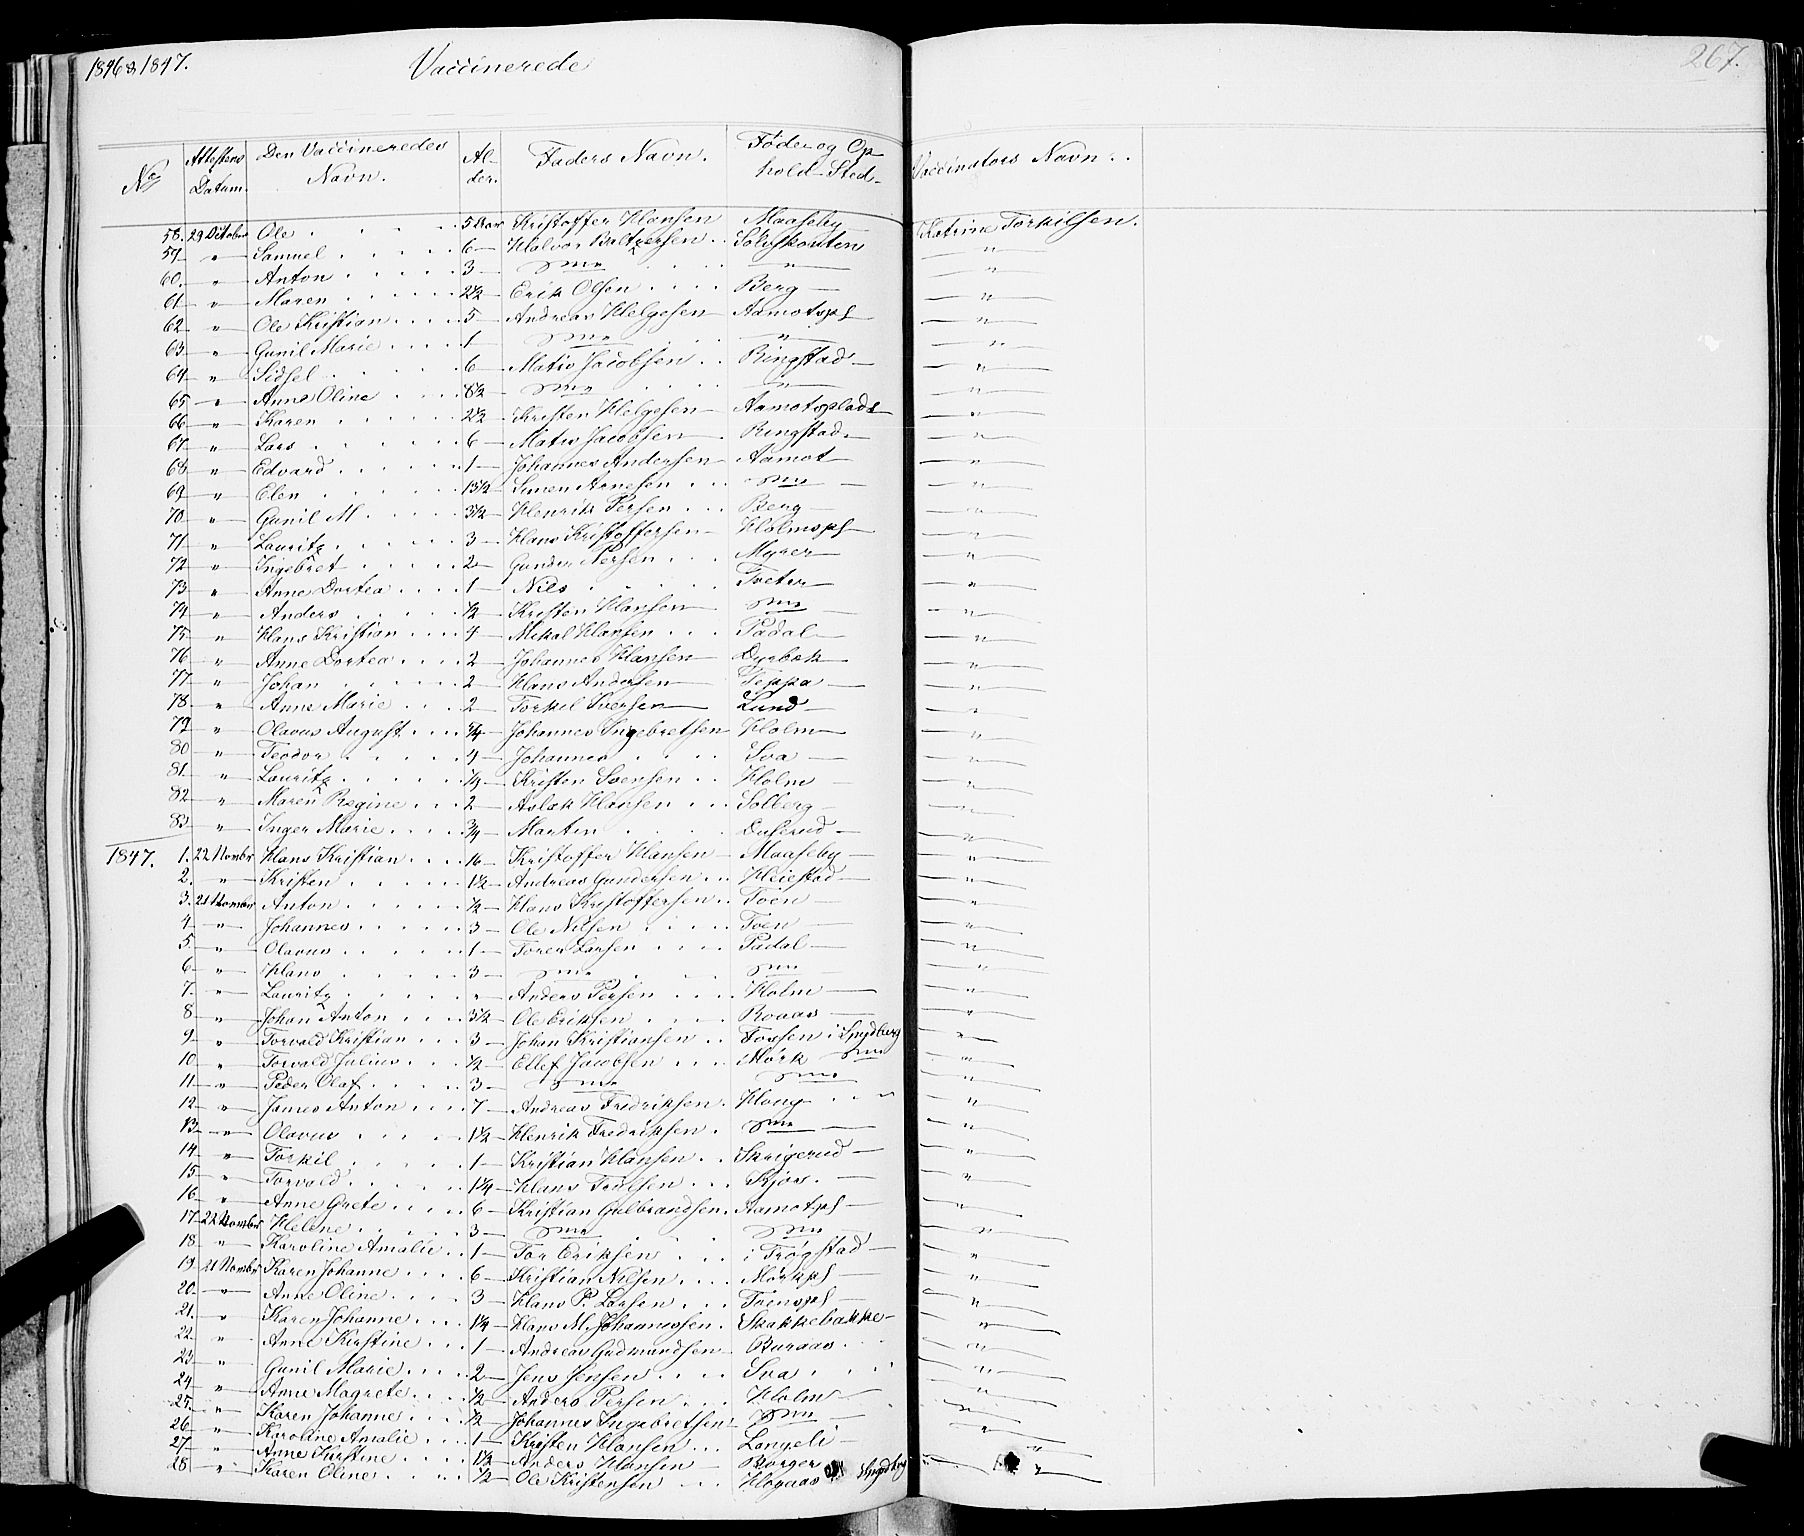 1846 & 1847. Vaccinerede 267.
No Attestens Datum. Den Vaccineredes Navn. Al-der. Faders Navn. Føde og Op-hold-Sted Vaccinators Navn.
58. 29 October Ole 5 Aar Kristoffer Hansen Maaseby Katrine Torkilsen.
59 " Samuel 6 Halvor Baltzersen " "
60. " Anton 3 Do " "
61 " Maren 2½ Erik Olsen Berg "
62 " Ole Kristian 5 Andreas Helgesen Aamotspl "
63. " Gunil Marie 1 Do " "
64 " Sidsel 6 Mativ Jacobsen Ringstad "
65 " Anne Oline 8½ Do " "
66 " Karen 2½ Kristen Helgesen Aamotsplads "
67. " Lars 6 Mativ Jacobsen Ringstad "
68 " Edvard 1 Johannes Andersen Aamot "
69 " Elen 13½ Simen Arnesen Do "
70 " Gunil M 3½ Henrik Persen Berg "
71 " Lauritz 3 Hans Kristoffersen Holmspl "
72 " Ingebret 2 Gunder Persen Myrer "
73 " Anne Dortea 1 Nils Tveter "
74 " Anders ½ Kristen Hansen Do "
75 " Hans Kristian 4 Mikal Hansen Padal "
76 " Anne Dortea 2 Johannes Hansen Dyrbæk "
77 " Johan 2 Hans Andersen Teppa "
78 " Anne Marie 2 Torkil Iversen Lund "
79 " Olavus August ¾ Johannes Ingebretsen Holm "
80 " Teodor 4 Johannes Sva "
81. " Lauritz ½ Kristen Svensen Holm "
82 " Maren Regine 2 Aslak Hansen Solberg "
83 " Inger Marie ¾ Martin Duserud "
1847. 1. 22 Novembr Hans Kristian 16 Kristoffer Hansen Maaseby "
2. " Kristen 1½ Andreas Gundersen Heiestad "
3. 21 Novembr Anton ½ Hans Kristoffersen Toen "
4 " Johannes 3 Ole Nilsen Toen "
5 " Olavus 1 Torer Larsen Padal "
6 " Hans 3 Do Do "
7. " Lauritz " Anders Persen Holm "
8 " Johan Anton 3½ Ole Eriksen Roaas "
9 " Torvald Kristian 3 Johan Kristiansen Fossen i Spydberg "
10 " Torvald Julius ½ Ellef Jacobsen Mørk Do "
11 " Peder Olaf 3 Do Do "
12 " James Anton 7 Andreas Fredriksen Houg "
13 " Olavus 1½ Henrik Fredriksen Do "
14 " Torkil 1 Kristian Hansen Skrigerud "
15 " Torvald 1¼ Hans Troelsen Kjøs "
16 " Anne Grete 6 Kristian Gulbrandsen Aamotspl "
17 22 Novembr Helene 3 Do Do "
18 " Karoline Amalie 1 Tor Eriksen i Trøgstad "
19 21 Novembr Karen Johanne 6 Kristian Nilsen Mørkpl "
20. " Anne Oline 3 Hans P. Larsen Toenspl "
21. " Karen Johanne 1¼ Hans M. Johannessen Skakkebakke "
22. " Anne Kirstine 1 Andreas Gudmundsen Buraas "
23 " Gunil Marie 2 Jens Jensen Sva "
24 " Anne Magrete ½ Anders Persen Holm "
25. " Karen Johanne ½ Johannes Ingebretsen Do "
26 " Karoline Amalie 1 Kristen Hansen Langeli "
27 " Anne Kirstine 1½ Anders Hansen Borger "
28 " Karen Oline ½ Ole Kristensen Høgaas Spydberg "